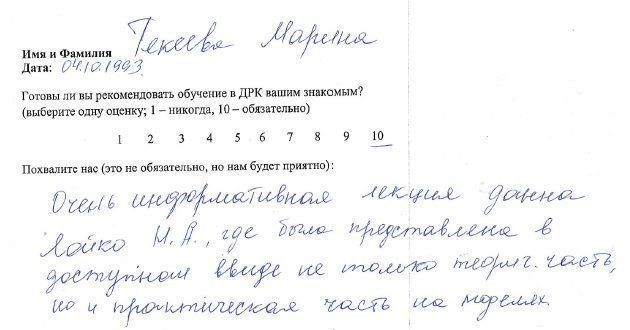 Имя и Фамилия Текеева Марина
Дата: 04.10.1993.
Готовы ли вы рекомендовать обучение в ДРК вашим знакомым?
(выберите одну оценку; 1 – никогда, 10 – обязательно)
1 2 3 4 5 6 7 8 9 10
Похвалите нас (это не обязательно, но нам будет приятно):
Очень информативная лекция данна
Лойко И.А., где была представлена в
доступном ввиде не только теорич. часть,
но и практическая часть на моделях